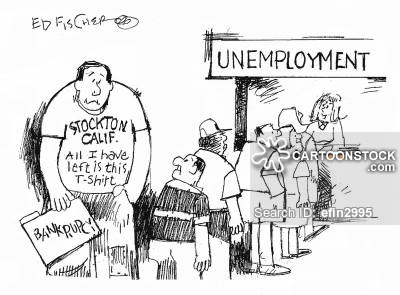 ED FISCHER
UNEMPLOYMENT
STOCKTON
CALIF.
All I have
left is this
T-Shirt
BANKRUPCY
CARTOONSTOCK
.com
Search ID: efin2995